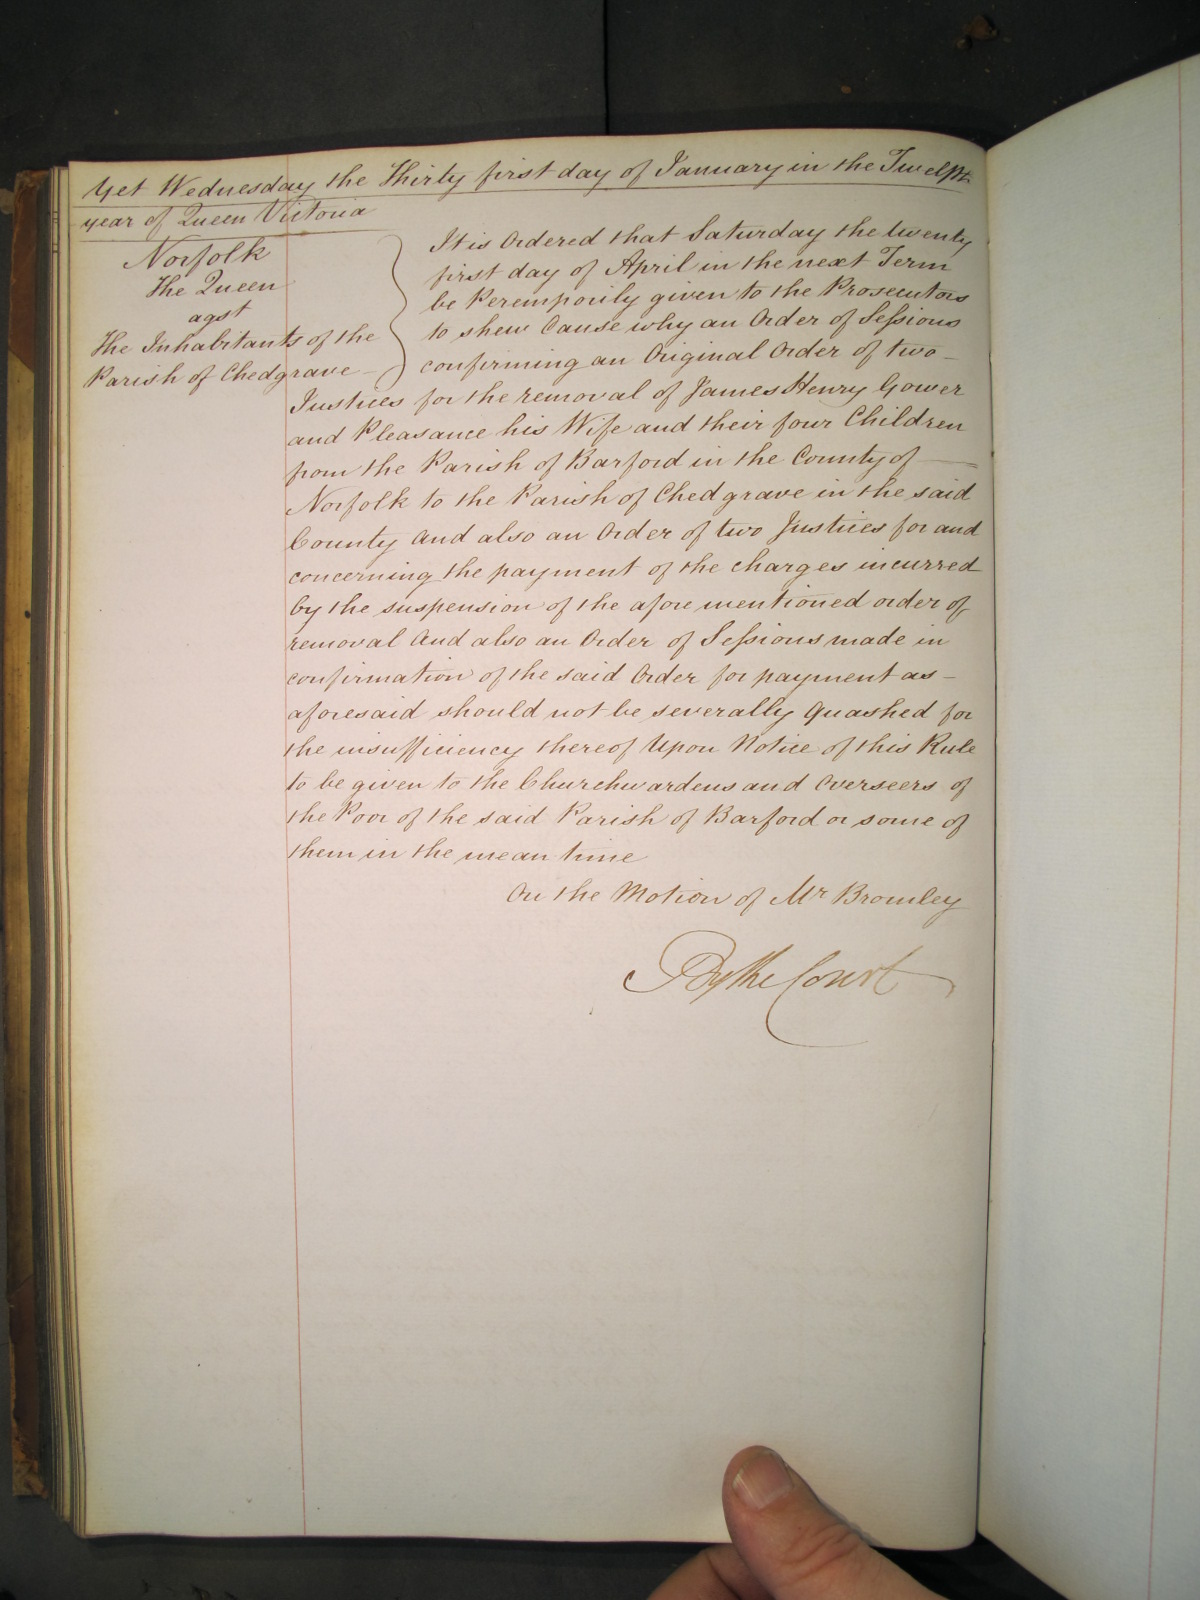 Yet Wednesday the Thirty first day of January in the Twelfth
year of Queen Victoria
Norfolk
The Queen
agst
The Inhabitants of the
Parish of Chedgrave
It is Ordered that Saturday the twenty
first day of April in the next Term
be Peremporily given to the Prosecutors
to shew Cause why an Order of Sessions
confirming an Original Order of two
Justices for the removal of James Henry Gower
and Pleasance his Wife and their four Children
from the Parish of Barford in the County of
Norfolk to the Parish of Chedgrave in the said
County and also an Order of two Justices for and
concerning the payment of the charges incurred
by the suspension of the afore mentioned order of
removal and also an Order of Sessions made in
confirmation of the said Order for payment as
aforesaid should not be severally quashed for
the insufficiency thereof Upon Notice of this Rule
to be given to the Churchwardens and Overseers of
the Poor of the said Parish of Barford or some of
them in the mean time
On the Motion of Mr Bromley
By the Court